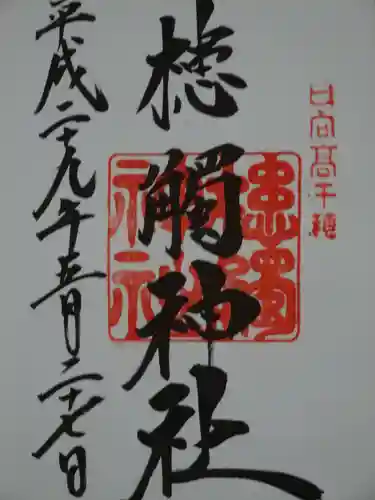 日向高千穂
槵觸神社
平成二十九年五月二十七日